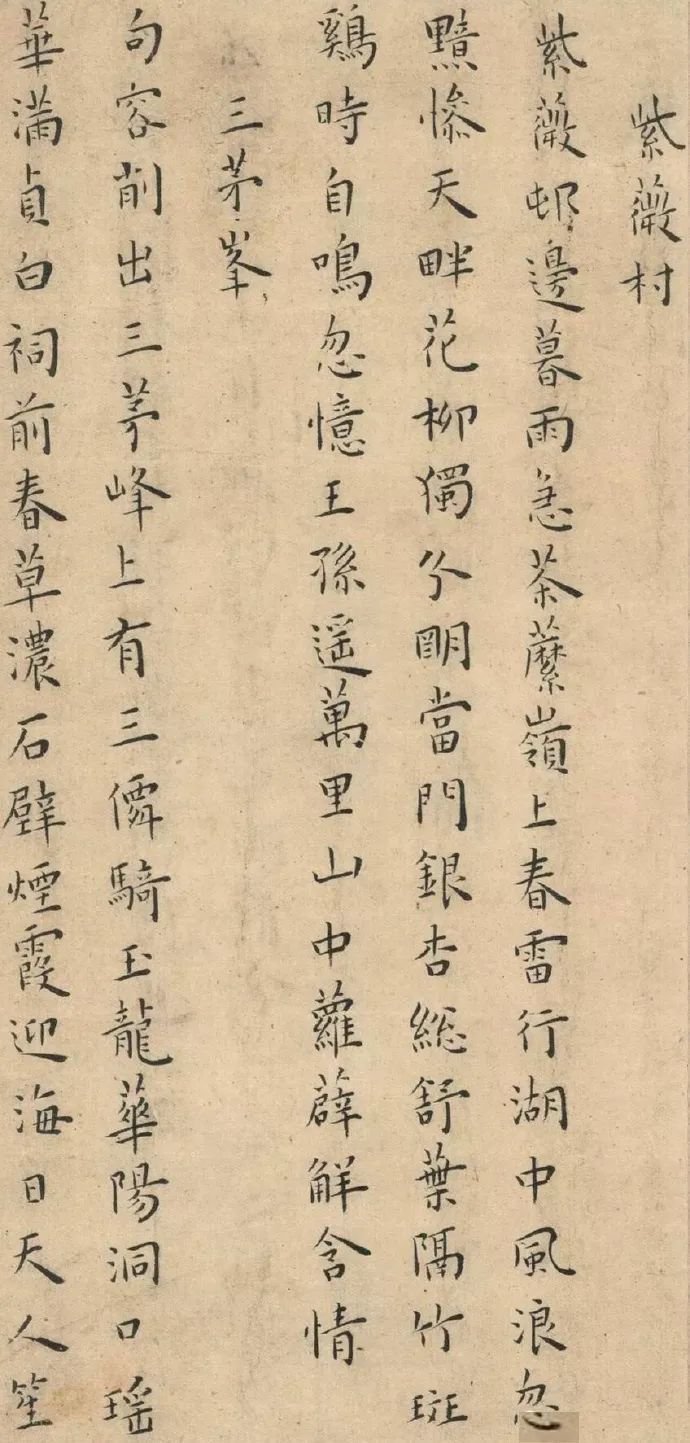 紫薇村
紫薇邨邊暮雨急荼蘼嶺上春雷行湖中風浪忽
黯慘天畔花柳獨分明當門銀杏總舒葉隔竹斑
鷄時自鳴忽憶王孫遥萬里山中蘿薜解含情
三茅峯
句容削出三茅峰上有三僊騎玉龍華陽洞口瑶
華滿貞白祠前春草濃石壁煙霞迎海日天人笙